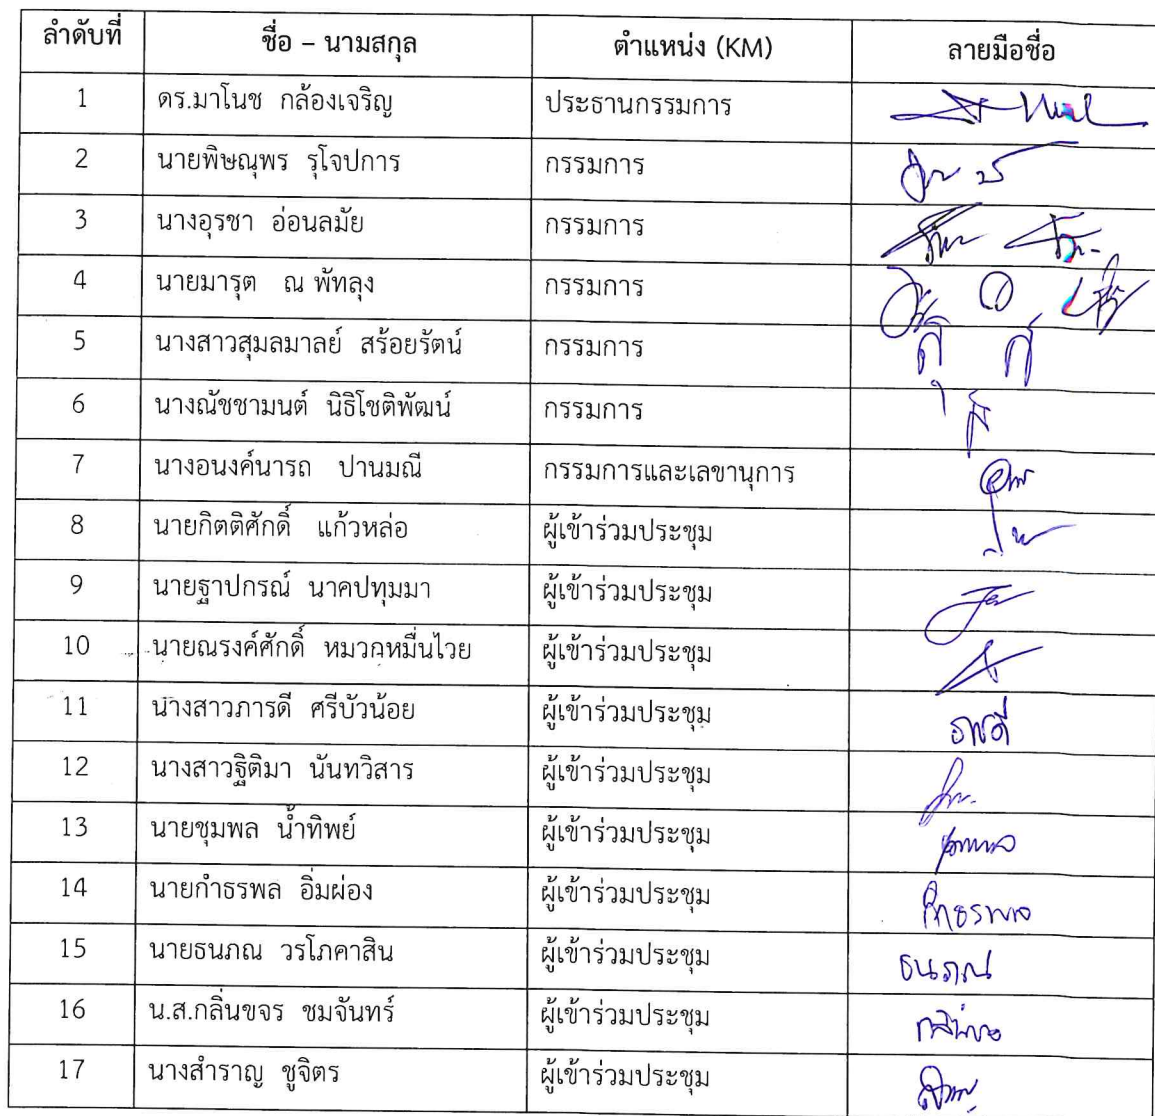 ลำดับที่ ชื่อ – นามสกุล ตำแหน่ง (KM) ลายมือชื่อ
1 ดร.มาโนช กล้องเจริญ ประธานกรรมการ
2 นายพิษณุพร รุโจปการ กรรมการ
3 นางอุรชา อ่อนลมัย กรรมการ
4 นายมารุต ณ พัทลุง กรรมการ
5 นางสาวสุมลมาลย์ สร้อยรัตน์ กรรมการ
6 นางณัชชามนต์ นิธิโชติพัฒน์ กรรมการ
7 นางอนงค์นารถ ปานมณี กรรมการและเลขานุการ
8 นายกิตติศักดิ์ แก้วหล่อ ผู้เข้าร่วมประชุม
9 นายฐาปกรณ์ นาคปทุมมา ผู้เข้าร่วมประชุม
10 นายณรงค์ศักดิ์ หมวกหมื่นไวย ผู้เข้าร่วมประชุม
11 นางสาวภารดี ศรีบัวน้อย ผู้เข้าร่วมประชุม
12 นางสาวฐิติมา นันทวิสาร ผู้เข้าร่วมประชุม
13 นายชุมพล น้ำทิพย์ ผู้เข้าร่วมประชุม
14 นายกำธรพล อิ่มผ่อง ผู้เข้าร่วมประชุม กำธรพล
15 นายธนภณ วรโภคาสิน ผู้เข้าร่วมประชุม ธนภณ
16 น.ส.กลิ่นขจร ชมจันทร์ ผู้เข้าร่วมประชุม
17 นางสำราญ ชูจิตร ผู้เข้าร่วมประชุม